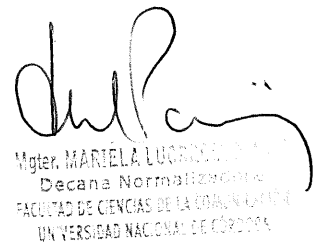 Mgter. MARIELA
Decana Normalizadora
FACULTAD DE CIENCIAS DE LA COMUNICACIÓN
UNIVERSIDAD NACIONAL DE CÓRDOBA